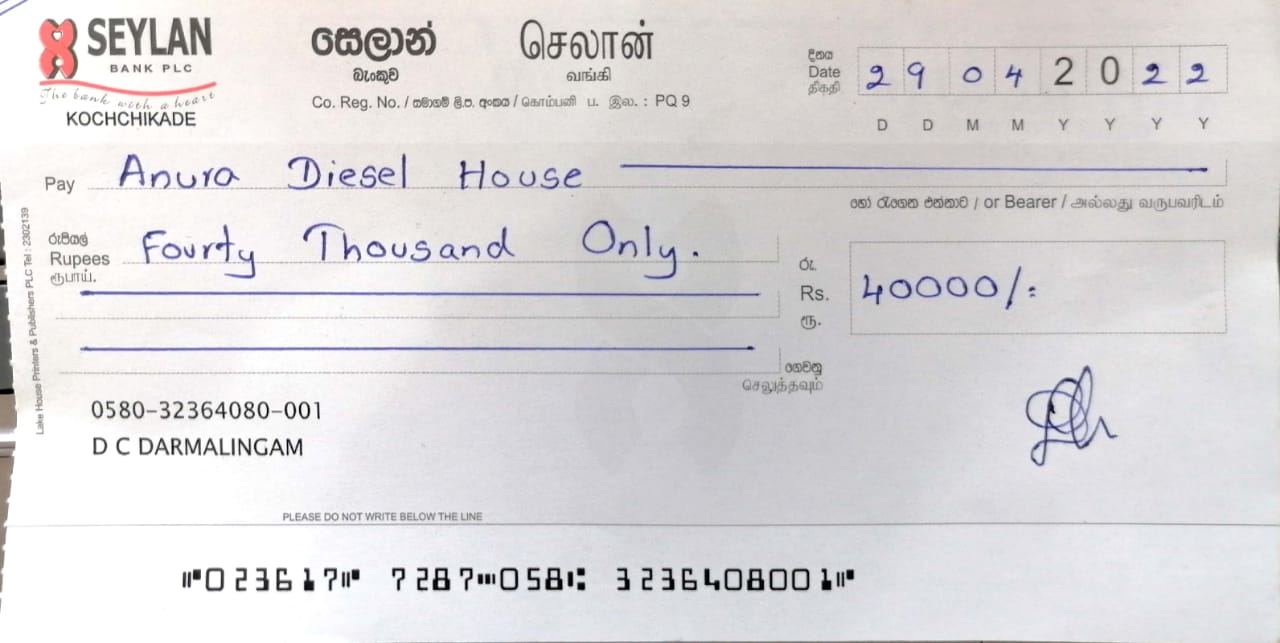 SEYLAN
BANK PLC
The bank with a heart
KOCHCHIKADE
සෙලාන් செலான்
බැංකුව வங்கி
Co. Reg. No. / සමාගම් ලි.ප. අංකය / கொம்பனி ப. இல. : PQ 9
දිනය
Date 29 04 2022
திகதி
D D M M Y Y Y Y
Pay Anura Diesel House
හෝ රැගෙන එන්නාට / or Bearer / அல்லது வருபவரிடம்
රුපියල්
Rupees Fourty Thousand Only.
ரூபாய்.
රු.
Rs. 40000/=
ரூ.
ගෙවනු
செலுத்தவும்
0580-32364080-001
D C DARMALINGAM
Lake House Printers & Publishers PLC Tel : 2302139
PLEASE DO NOT WRITE BELOW THE LINE
⑈023617⑈ 7287⑉058⑆ 3236408001⑈